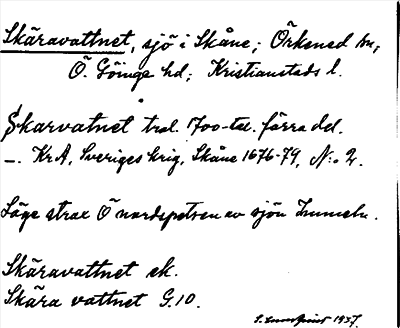 Skäravattnet, sjö i Skåne; Örkened sn,
Ö. Göinge hd; Kristianstads l.
Skarvatnet trol. 1700-tal. förra del.
–. KrA, Sveriges krig, Skåne 1676-79, No 2.
Läge strax Ö nordspetsen av sjön Immeln.
Skäravattnet ek.
Skära vattnet G.10.
1937.